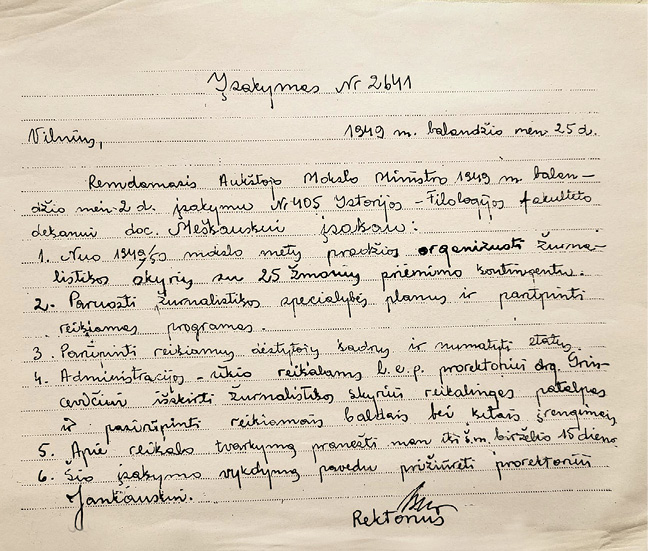 Įsakymas Nr 2641
Vilnius,
1949 m. balandžio mėn 25 d.
Remdamasis Aukštojo Mokslo Ministro 1949 m. balan-
džio mėn 2 d. įsakymu Nr 405 Istorijos - Filologijos fakulteto
dekanui doc. Meškauskui įsakau:
1. Nuo 1949/50 mokslo metų pradžios organizuoti žurna-
listikos skyrių su 25 žmonių priėmimo kontingentu.
2. Paruošti žurnalistikos specialybės planus ir parūpinti
reikiamas programas.
3. Parūpinti reikiamų dėstytojų kadrų ir numatyti etatus.
4. Administracijos - ūkio reikalams l.e.p. prorektoriui drg.
išskirti žurnalistikos skyriui reikalingas patalpas
ir pasirūpinti reikiamais baldais bei kitais įrengimais
5. Apie reikalo tvarkymą pranešti man iki š.m. birželio 15 dienos
6. Šio įsakymo vykdymą pavedu prižiūrėti prorektoriui
Jankauskui.
Rektorius